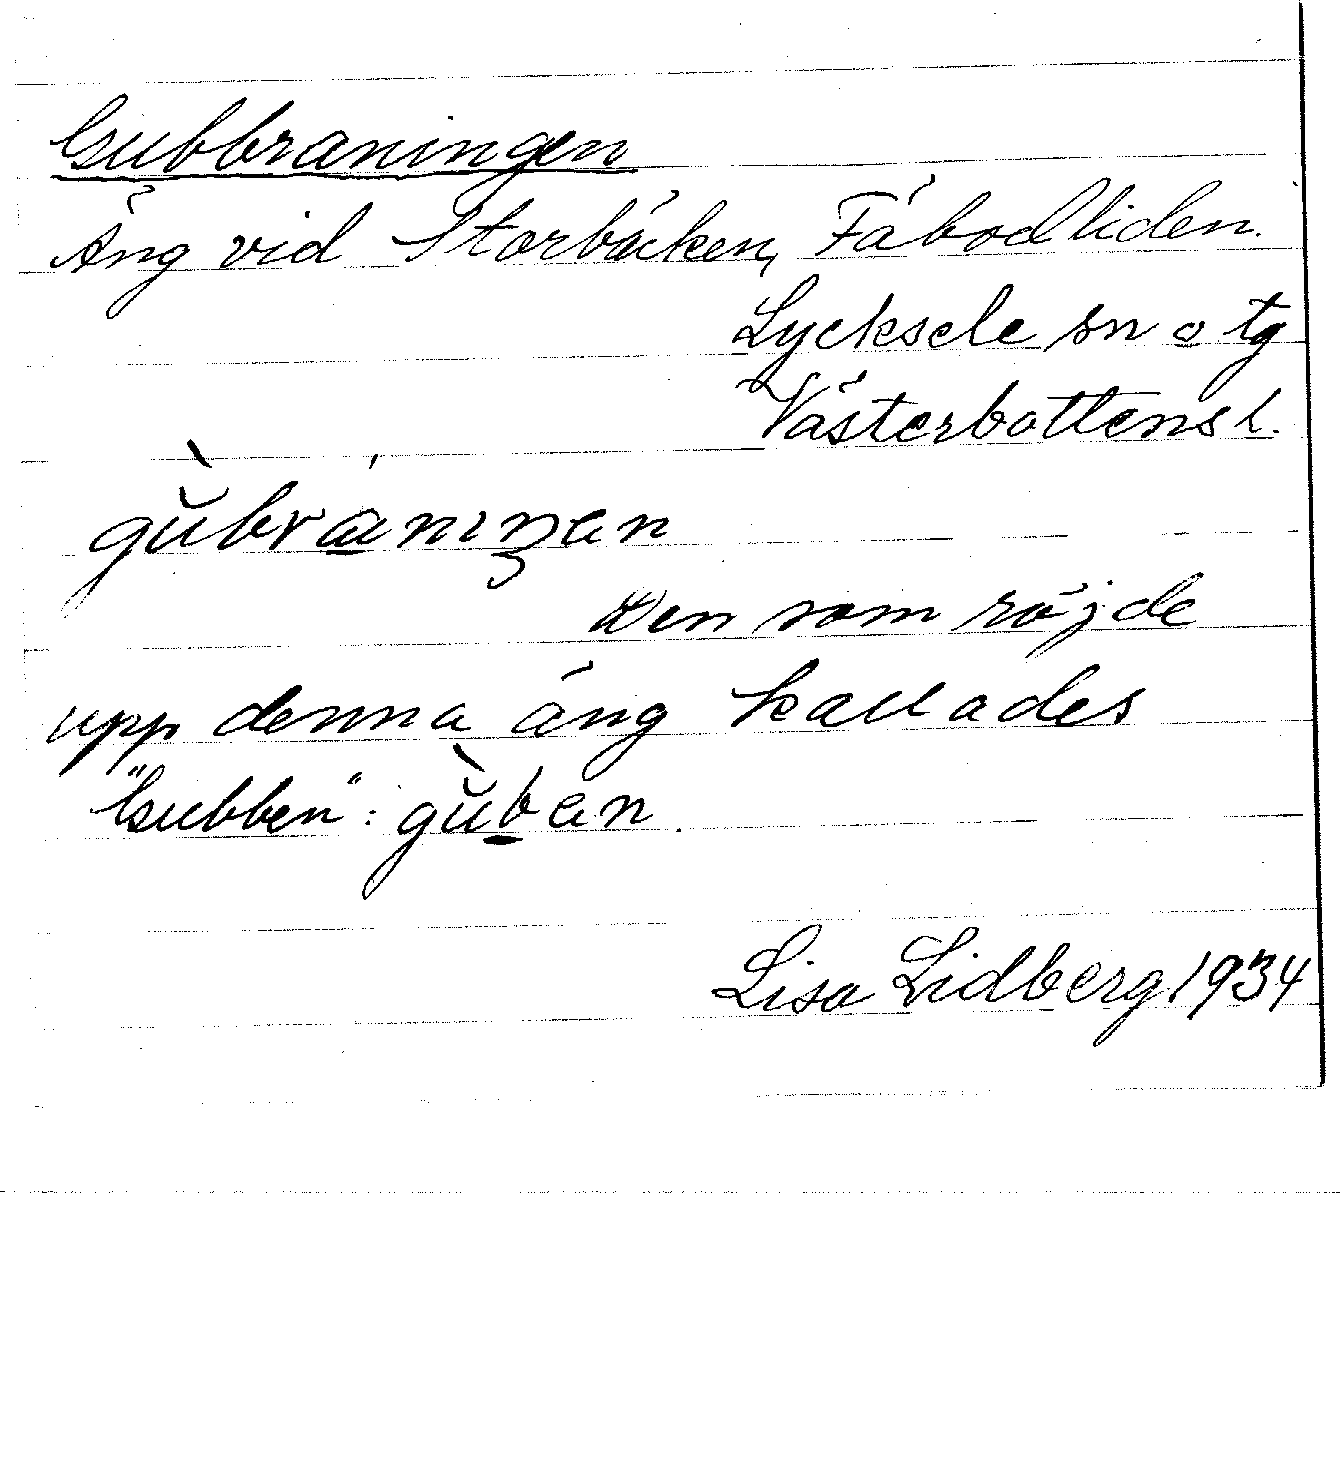 Gubbraningen
Äng vid Storbäcken, Fäbodliden.
Lycksele sn o tg
Västerbottens l.
gŭ̀bránıŋen
Den som röjde
upp denna äng kallades
"Gubben": gŭ̀ben.
Lisa Lidberg 1934